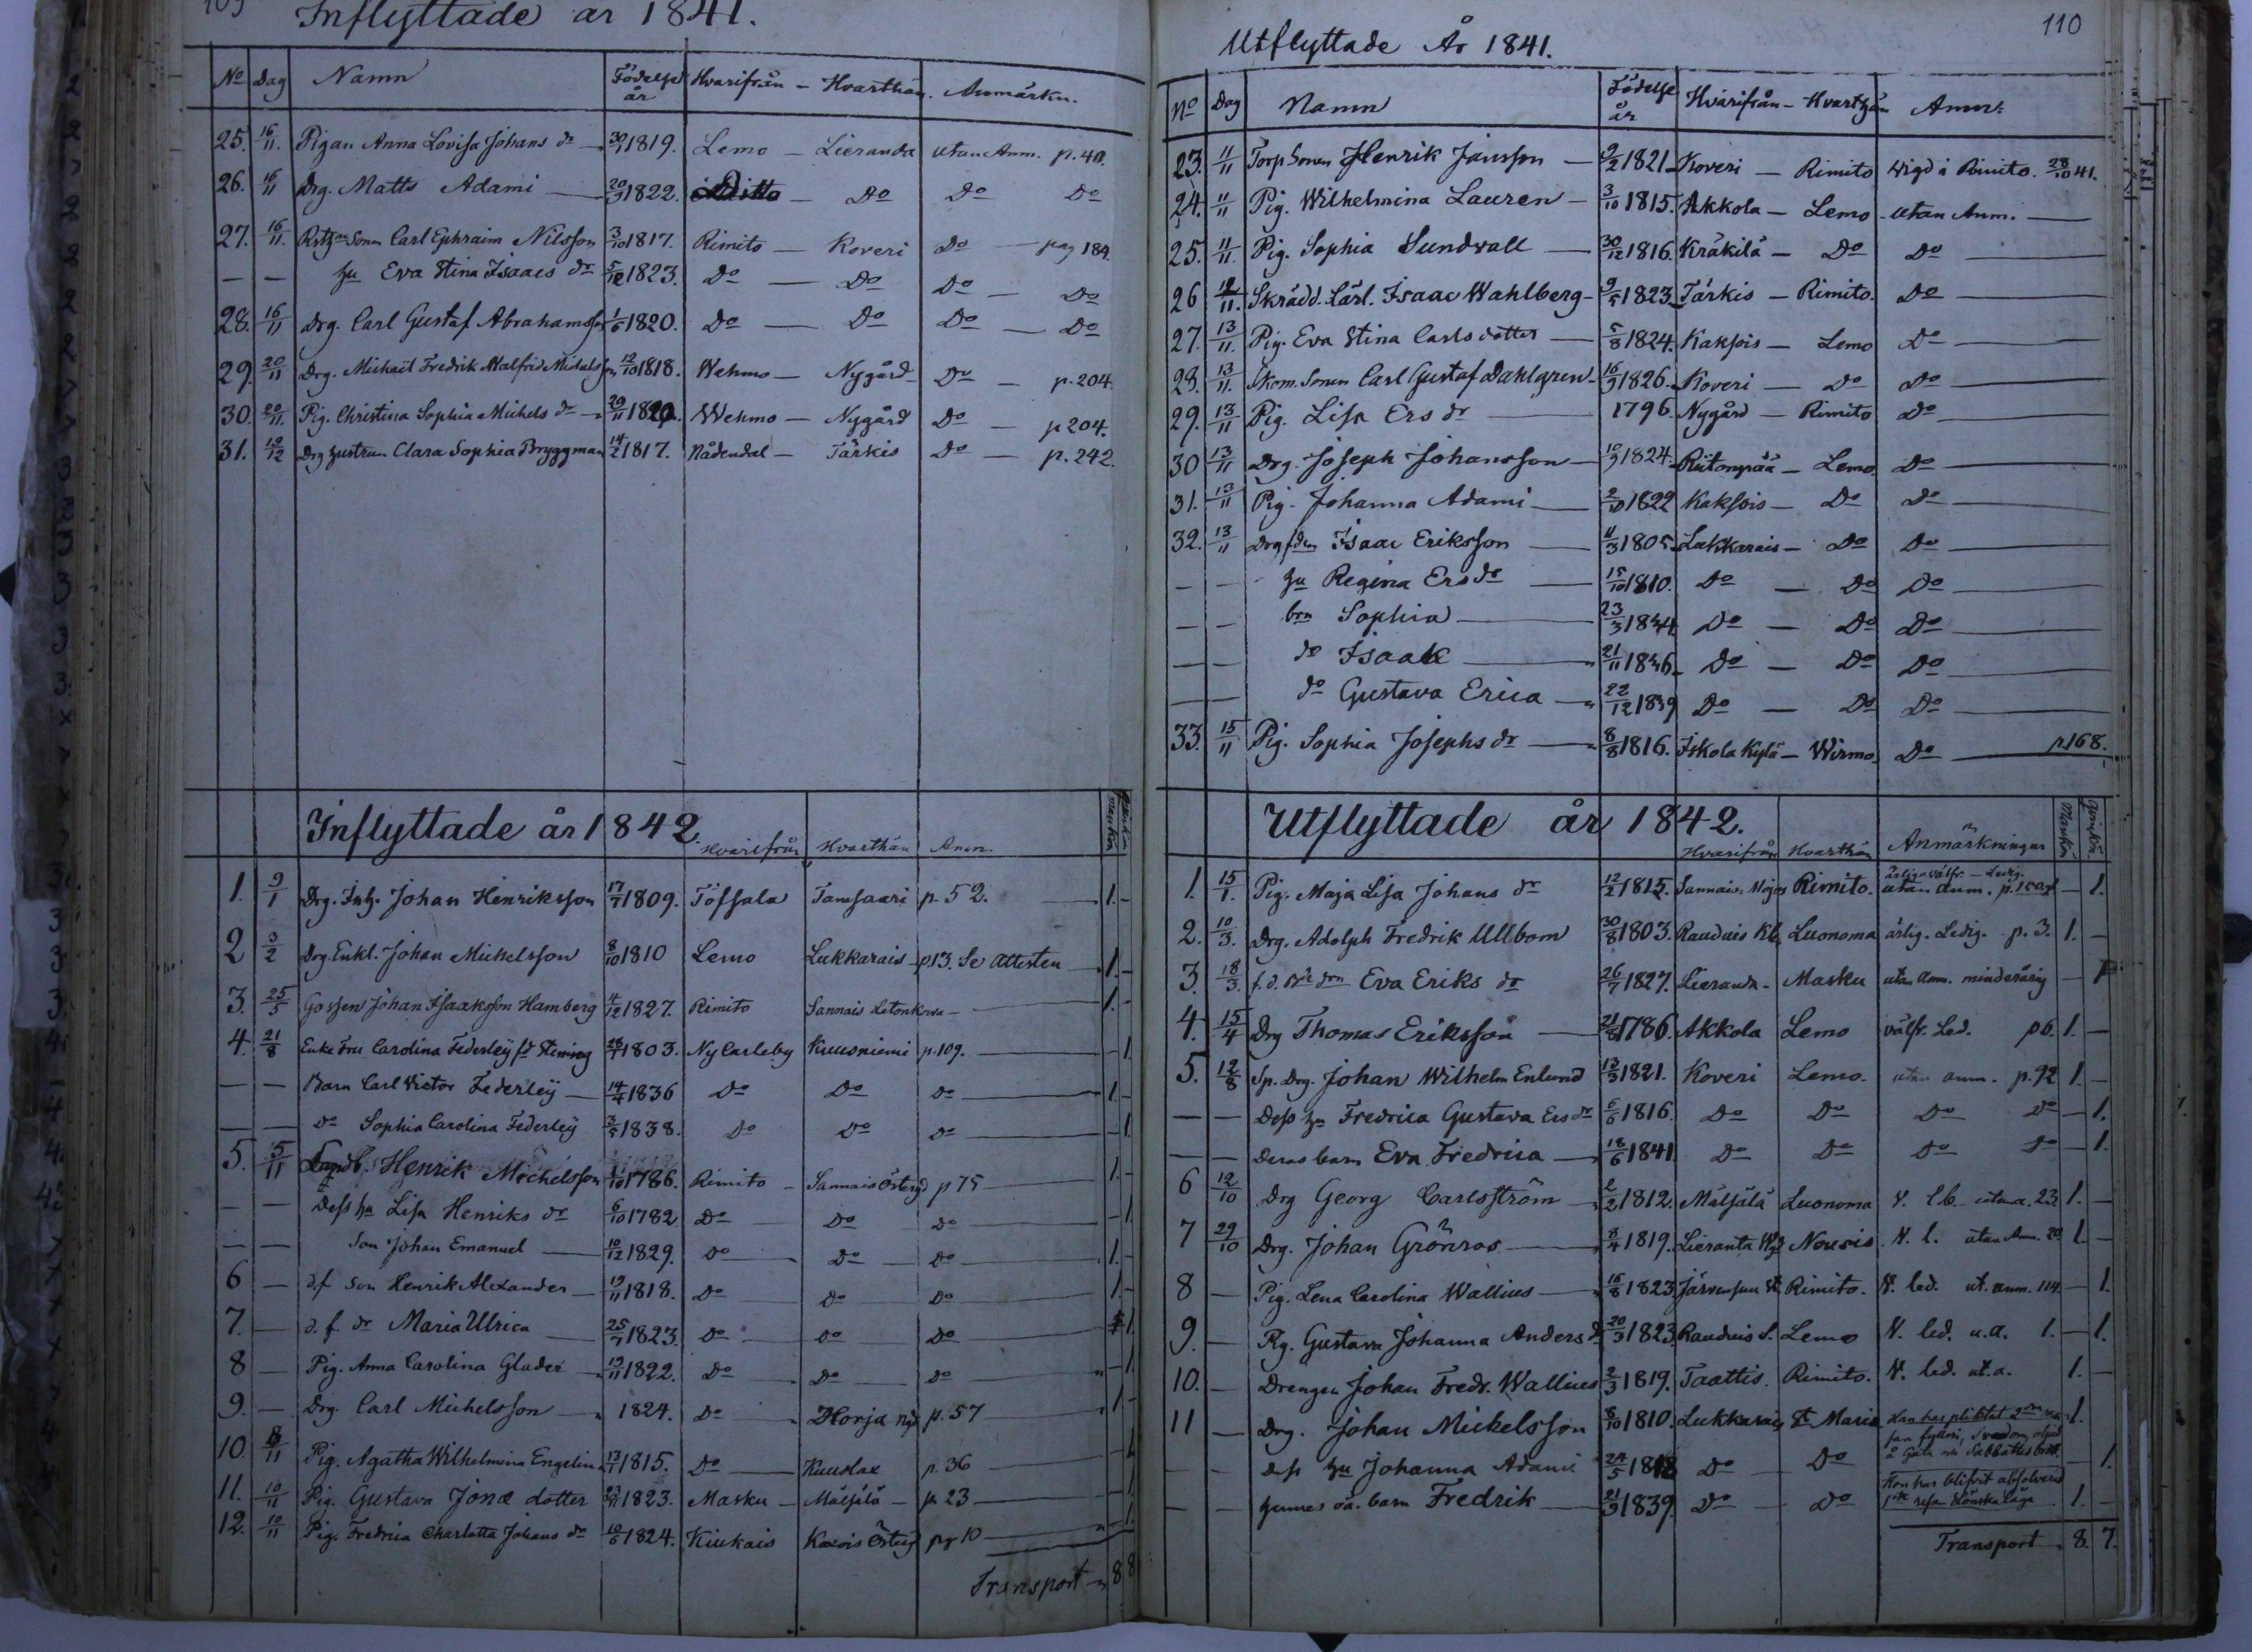 109
Inflyttade år 1841.
No Dag Namn Födelse år Hvarifrån - Hvarthän. Anmärkn.
25. 16/11. Pigan Anna Lovisa Johans dr 30/7 1819. Lemo - Lieranda utan Anm. p. 40.
26. 16/11 Drg. Matts Adami 20/3 1822. Ditto - Do Do Do
27. 16/11. Carl Ephraim Nilsson 3/10 1817. Rimito - Koveri Do - pag 184.
— — hu Eva Stina Isaacs dr 5/12 1823. Do - Do Do - Do
28. 16/11 Drg. Carl Gustaf Abrahamsson 1/6 1820. Do - Do Do - Do
29. 20/11 Drg. Michaël Fredrik Malfrid Michelsson 12/10 1818. Wehmo - Nygård Do - p. 204.
30. 20/11. Pig. Christina Sophia Michels dr 29/11 1820. Wehmo - Nygård Do - p 204.
31. 12/12 Drg hustrun Clara Sophia Bryggman 14/2 1817. Nådendal - Tärkis Do - p. 242.
Inflyttade år 1842.
Hvarifrån Hvarthän Anm. Mankön Qvinkön
1. 9/1 Drg. Inh. Johan Henriksson 17/7 1809. Töfsala Tamsaari p. 52. 1. -
2 3/2 Drg. Enkl. Johan Michelsson 8/10 1810 Lemo Lukkarais p. 13. Se attesten 1. -
3. 25/5 Gossen Johan Isaaksson Hamberg 4/12 1827. Rimito Sannais Letonkova 1. -
4. 21/8 Enke Fru Carolina Federleÿ 26/7 1803. Ny Carleby Kuusniemi p. 109. - 1.
— — Barn Carl Victor Federleÿ 14/4 1836 Do Do Do 1. -
— — Do Sophia Carolina Federleÿ 3/5 1838. Do Do Do - 1.
5. 5/11 Landb. Henrik Michelsson 1786. Rimito - Sannais Österg p 75 1. -
— — Dess hu Lisa Henriks dr 6/10 1782 Do Do Do - 1.
— — Son Johan Emanuel 10/12 1829. Do Do Do 1. -
6 — d.f son Henrik Alexander 19/11 1818. Do Do Do 1. -
7. — d. f. dr Maria Ulrica 25/7 1823. Do Do Do 1.
8 — Pig. Anna Carolina Glader 19/11 1822. Do Do Do - 1.
9. — Drg. Carl Michelsson 1824. Do Horja p. 57 1. -
10. 8/11 Pig. Agatha Wilhelmina Engelin 13/7 1815. Do Kuuslax p. 36 - 1.
11. 10/11 Pig. Gustava Jonæ dotter 1823. Masku - Mälsälä - p. 23 - 1.
12. 10/11 Pig. Fredrica Charlotta Johans dr 10/6 1824. Kiukais Kaxois Österg pg 10 - 1.
Transport 8 8
110
Utflyttade År 1841.
No Dag Namn Födelse år Hvarifrån - Hvarthän Anm:
23. 11/11 Torp Sonen Henrik Jansson 9/2 1821 Koveri - Rimito Wigd i Rimito. 28/10 41.
24. 11/11 Pig. Wilhelmina Lauren 3/10 1815. Akkola - Lemo utan Anm.
25. 11/11. Pig. Sophia Sundvall 30/12 1816. Kräkilä - Do Do
26 12/11. Skrädd. Lärl. Isaac Wahlberg 9/5 1823 Tärkis - Rimito. Do
27. 13/11. Pig. Eva Stina Carlsdotter 5/8 1824. Kaksois - Lemo Do
28. 13/11. Skom. Sonen Carl Gustaf Dahlgren 16/9 1826. Koveri - Do Do
29. 13/11 Pig. Lisa Ers dr 1796. Nygård - Rimito Do
30 13/11 Drg. Joseph Johansson 10/9 1824. Riitanpää - Lemo Do
31. 13/11 Pig. Johanna Adami 2/10 1822 Kaksois - Do Do
32. 13/11 Isaac Eriksson 11/3 1805 Lukkarais - Do Do
— — hu Regina Ers dr 15/10 1810. Do - Do Do
— — brn Sophia 23/3 1834 Do - Do Do
— — do Isaak 21/11 1836 Do - Do Do
— do Gustava Erica 22/12 1839 Do - Do Do
33. 15/11 Pig. Sophia Josephs dr 8/8 1816. Iskola Kylä - Wirmo Do p. 168.
Utflyttade år 1842.
Hvarifrån Hvarthän Anmärkningar Mankön Qvinkön
1. 15/1. Pig. Maja Lisa Johans dr 12/2 1815. Sannais Rimito. ärlig välfr. - Ledig. utan anm. - 1.
2. 10/3. Drg. Adolph Fredrik Ullbom 30/8 1803. Rauduis Luonoma ärlig. Ledig. p. 3. 1. -
3. 18/3. Eva Eriks dr 26/7 1827. Lieranda Masku utan anm. minderårig - 1
4. 15/4 Drg Thomas Eriksson 21/8 1786. Akkola Lemo välfr. Led. p 6. 1. -
5. 12/8 Sp. Drg. Johan Wilhelm Enlund 13/3 1821. Koveri Lemo. utan anm. p. 92 1. -
— — Dess hu Fredrica Gustava Ers dr 6/6 1816. Do Do Do Do - 1.
— — Deras barn Eva Fredrica 18/6 1841. Do Do Do Do - 1.
6 12/10 Drg Georg Carlsström 2/2 1812. Mälsälä Luonoma utan a. 23. 1. -
7 29/10 Drg. Johan Grönroos 8/4 1819. Lieranta Nousis N. l. utan Anm. 20. 1. -
8 — Pig. Lena Carolina Wallius 16/8 1823 Järvensuu Rimito. N. led. ut. anm. 114. - 1.
9. — Pig. Gustava Johanna Anders dr 20/3 1823. Rauduis Lemo N. led. u.a. 1. - 1.
10. — Drengen Johan Fredr. Wallius 2/3 1819. Taattis. Rimito. N. led. ut. a. 1. -
11 — Drg. Johan Michelsson 8/10 1810. Lukkarais St Marie Han har pliktat 1.
— — dess hu Johanna Adami 24/5 1818 Do Do å Gata och Sabbatsbrott - 1.
— — hennes oä. barn Fredrik 21/9 1839. Do Do Hon har blifvit absolverad 1. -
Transport 8. 7.